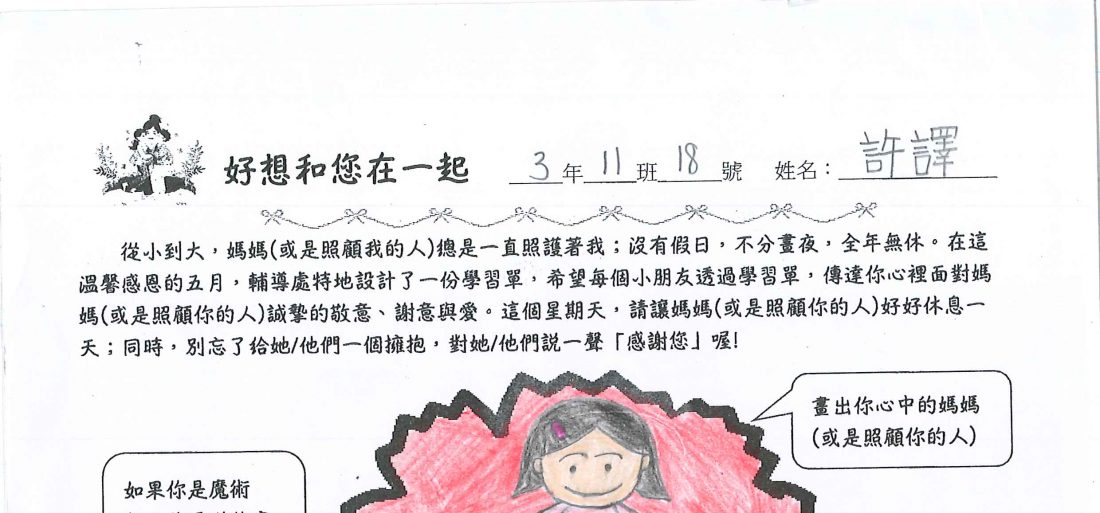 好想和您在一起 3年11班18號 姓名：許譯
從小到大，媽媽(或是照顧我的人)總是一直照護著我；沒有假日，不分晝夜，全年無休。在這
溫馨感恩的五月，輔導處特地設計了一份學習單，希望每個小朋友透過學習單，傳達你心裡面對媽
媽(或是照顧你的人)誠摯的敬意、謝意與愛。這個星期天，請讓媽媽(或是照顧你的人)好好休息一
天；同時，別忘了給她/他們一個擁抱，對她/他們說一聲「感謝您」喔!
畫出你心中的媽媽
(或是照顧你的人)
如果你是魔術